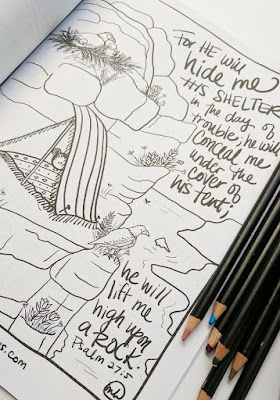 For HE will
hide me
in HIS SHELTER
in the day of
trouble; he will
Conceal me
under the
cover of
his tent,
he will
lift me
high upon
a ROCK.
Psalm 27:5
s.com